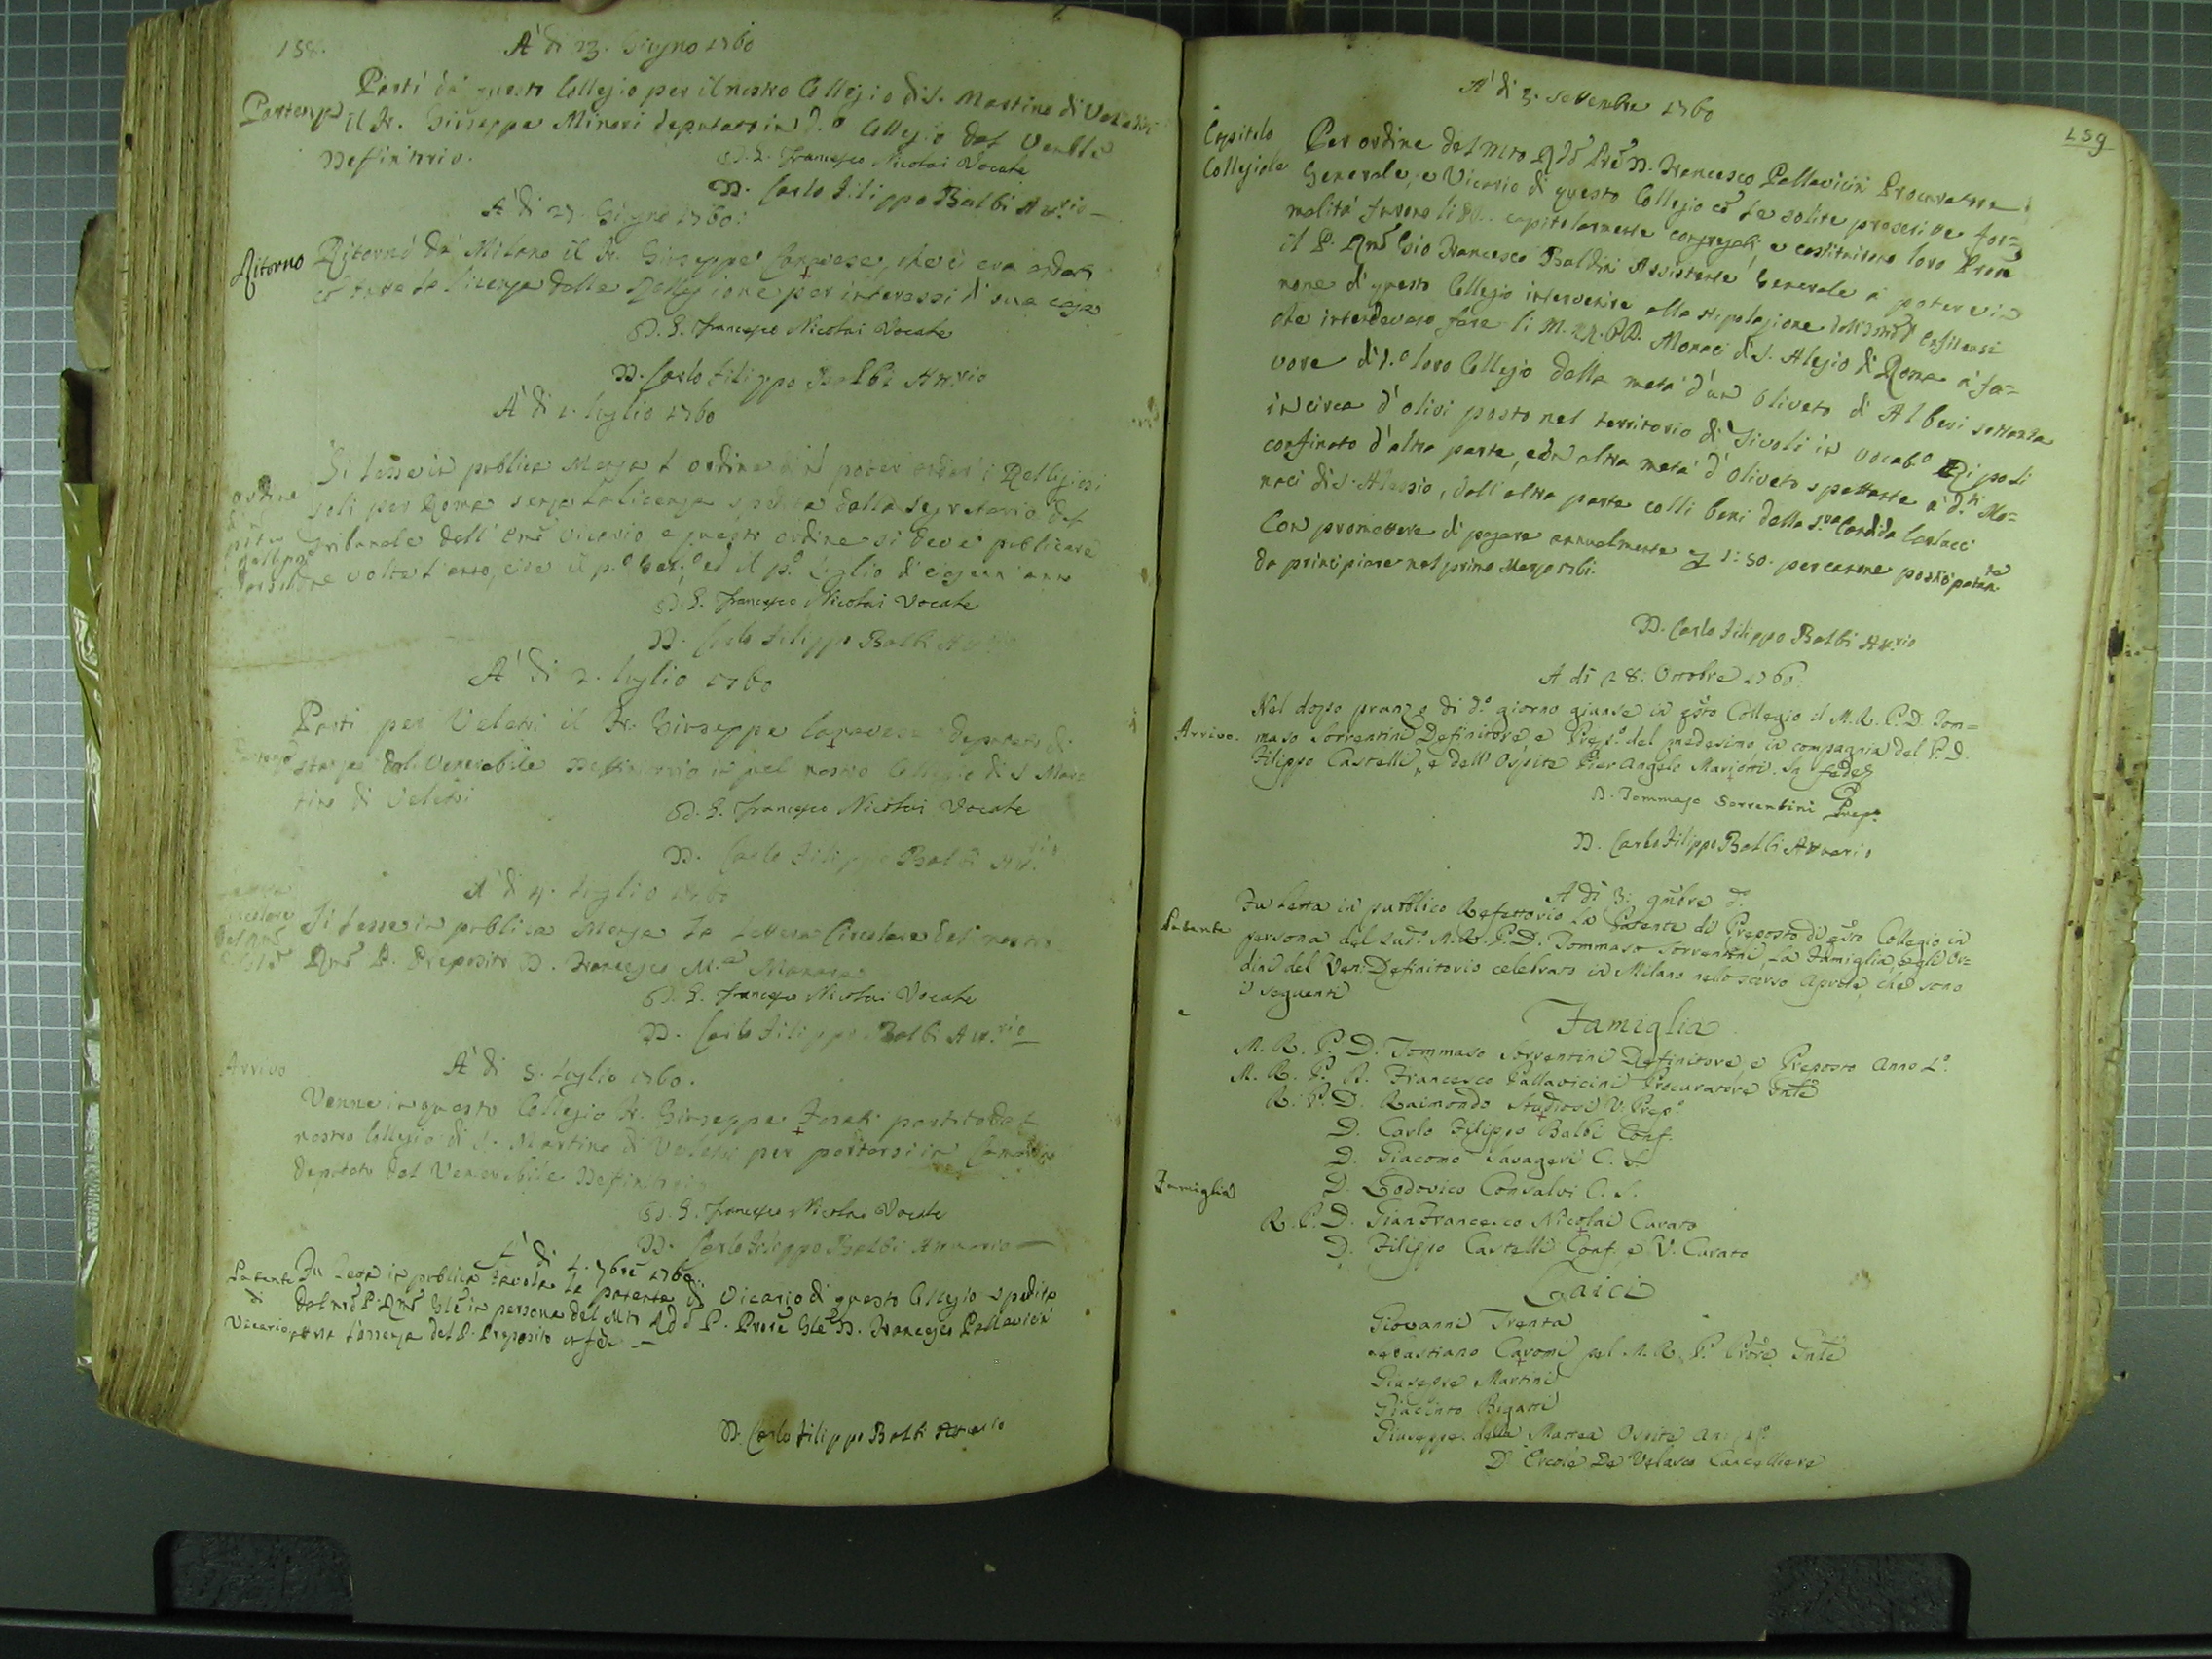 158.
A' di 23. Giugno 1760
Partenza
Partì da questo Collegio per il nostro Collegio di S. Martino di Velletri
il Fr. Giuseppe Minori deputato in d.o Collegio dal Venble
Deffinitorio.
D. G. Francesco Nicolai Vocale
D. Carlo Filippo Balbi Att.rio
A' di 27. Giugno 1760.
Ritorno
Ritornò da Milano il Fr. Giuseppe Canavese, che ci era andato
la licenza della Religione per interessi di sua casa
D. G. Francesco Nicolai Vocale
D. Carlo Filippo Balbi Att.rio
A' di 1. luglio 1760
Si lesse in publica Mensa l'ordine di poter andar i Religiosi
soli per Roma senza la licenza spedita dalla Segretaria del
Tribunale dell' Emo Vicario e questo ordine si deve publicare
volte l'anno, cioè il p.o Gen.o ed il p.o Luglio di ciascun anno
D. G. Francesco Nicolai Vocale
D. Carlo Filippo Balbi
A' di 2. luglio 1760
Partenza
Partì per Veletri il Fr. Giuseppe Canavese deputato di
stanza dal Venerabile Deffinitorio in nel nostro Collegio di S. Mar
tino di Veletri
D. G. Francesco Nicolai Vocale
D. Carlo Filippo Balbi
A' di 4. luglio 1760
Si lesse in publica Mensa la lettera Circolare del nostro
Rmo P. Preposito D. Francesco M.a Manara
D. G. Francesco Nicolai Vocale
D. Carlo Filippo Balbi Att.rio
Arrivo
A' di 5. luglio 1760.
Venne in questo Collegio Fr. Giuseppe Fosati partito dal
nostro Collegio di S. Martino di Veletri per portarsi in
deputato dal Venerabile Deffinitorio
D. G. Francesco Nicolai Vocale
D. Carlo Filippo Balbi Attuario
A' di 1. 7bre 1760.
Patente
di
Vicario
Fu letta in publica tavola la patente di Vicario di questo Collegio spedita
dal nro P. Rmo Gle in persona del Mto Rdo P. Prore Gle D. Francesco Pallavicini
attesa l'assenza del P. Preposito in fede
D. Carlo Filippo Balbi Attuario
159
A' di 3. settembre 1760
Capitolo
Collegiale
Per ordine del Mto Rdo Pre D. Francesco Pallavicini Procuratore
Generale, e Vicario di questo Collegio cò le solite prescritte for=
malità furono li PP. capitolarmente congregati, e costituirono loro Prore
il P. Rmo Gio Francesco Baldini Assistente Generale a poter in
nome di questo Collegio intervenire alla stipolazione dell' Enfiteusi
che intendevano fare li M. RR. PP. Monaci di S. Alesio di Roma a fa=
vore di d.o loro Collegio della metà d'un Oliveto di Alberi settanta
in circa d'olivi posto nel territorio di Tivoli in vocab.o Ripoli
confinato d'altra parte, con altra metà d'Oliveto spettante a' d.ti Mo=
naci di S. Alessio, dall' altra parte colli beni della S.ra Candida Carlacci
Con promettere di pagare annualmente 1: 50. per canone
da principiare nel primo Marzo 1761.
D. Carlo Filippo Balbi Att.rio
A di 28. Ottobre 1760.
Arrivo.
Nel dopo pranzo di d.o giorno giunse in qsto Collegio il M. R. P. D. Tom=
maso Sorrentini Definitore, e Prep.o del medesimo in compagnia del P. D.
Filippo Castelli, e dell' Ospite Pier Angelo Mariotti. In fede
D. Tommaso Sorrentini Prep.o
D. Carlo Filippo Balbi Attuario
A dì 3. 9mbre d.o
Patente
Fu letta in pubblico Refettorio la Patente di Preposto di qsto Collegio in
persona del sud.o M. R. P. D. Tommaso Sorrentini, La Famiglia, e gli Or=
dini del Ven: Definitorio celebrato in Milano nello scorso Aprile, che sono
i seguenti
Famiglia
Famiglia
M. R. P. D. Tommaso Sorrentini Definitore, e Preposto Anno 1.o
M. R. P. D. Francesco Pallavicini Procuratore Gnle
R. P. D. Raimondo Studiosi V. Prep.o
D. Carlo Filippo Balbi Conf.
D. Giacomo Savageri C. S.
D. Lodovico Consalvi C. S.
R. P. D. Gian Francesco Nicolai Curato
D. Filippo Castelli Conf. e V. Curato
Laici
Giovanni Trenta
Sebastiano Caromi pel M. R. P. Prore Gnle
Giuseppe Martini
Giacinto Bigatti
Giuseppe della Marrea Ospite
D. Ercole De Velasco Cancelliere